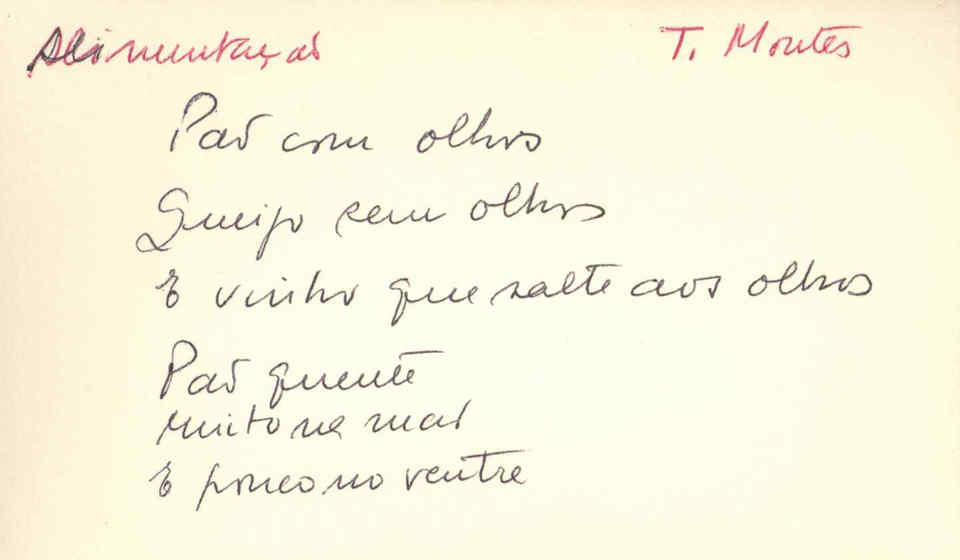 Alimentação T. Montes
Pão com olhos
Queijo sem olhos
E vinho que salte aos olhos
Pão quente
Muito na mão
E pouco no ventre